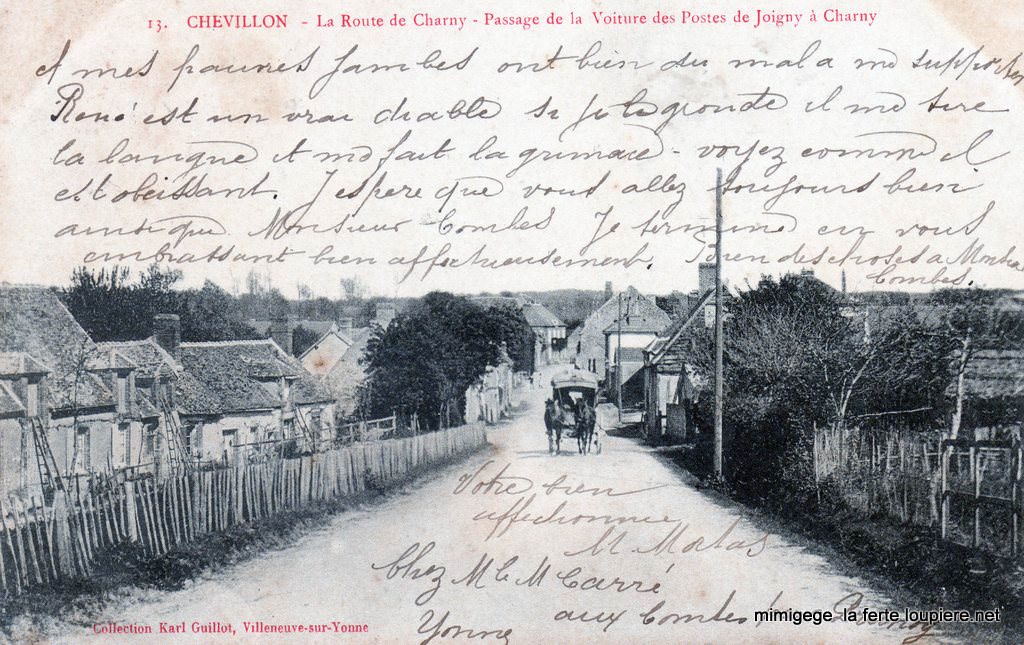 13. CHEVILLON - La Route de Charny - Passage de la Voiture des Postes de Joigny à Charny
et mes pauvres jambes ont bien du mal a me supporter
René est un vrai diable si je le gronde il me tire
la langue et me fait la grimace - voyez comme il
est obeissant. J'espere que vous allez toujours bien
ainsi que Monsieur Combes Je termine en vous
embrassant bien affectueusement. Bien des choses a
Combes.
Votre bien
affectionnée
M
Chez M Carré
aux Combes
Yonne
Collection Karl Guillot, Villeneuve-sur-Yonne
mimigege la ferte loupiere.net